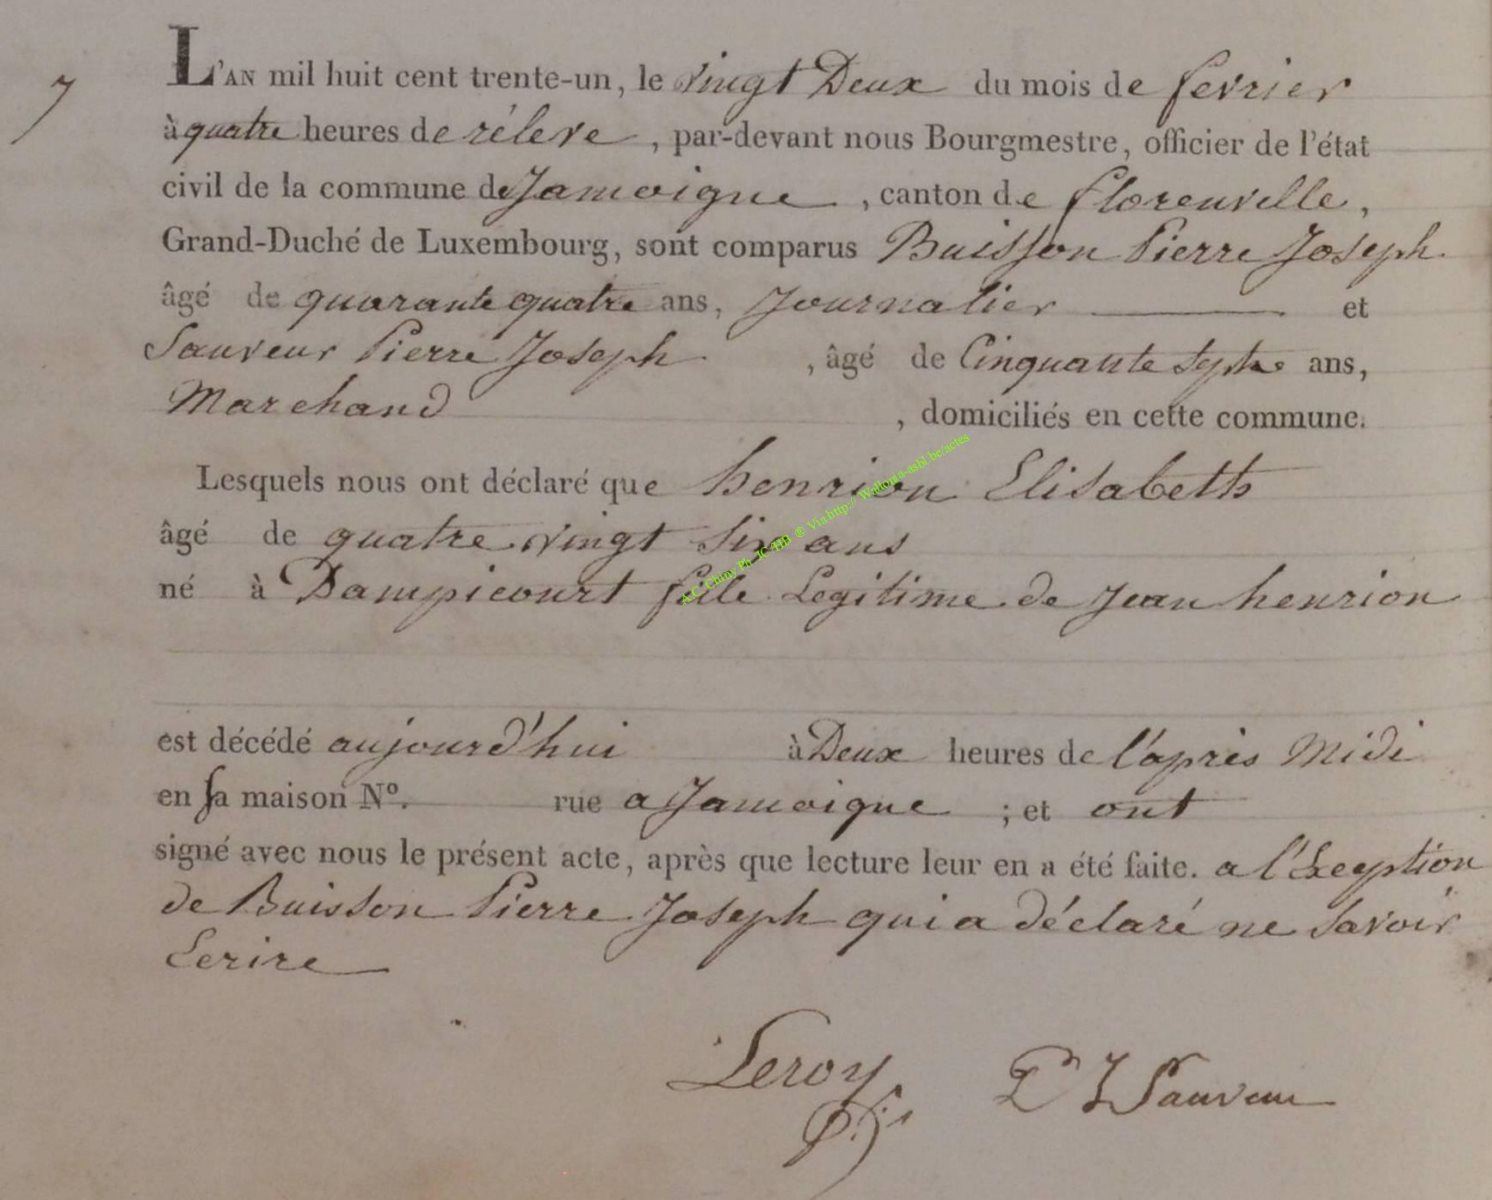 7
L'AN mil huit cent trente-un, le vingt Deux du mois de fevrier
à quatre heures de rélevé, par-devant nous Bourgmestre, officier de l'état
civil de la commune de Jamoigne, canton de florenville,
Grand-Duché de Luxembourg, sont comparus Buisson Pierre Joseph
âgé de quarante quatre ans, Journalier et
Sauveur Pierre Joseph, âgé de Cinquante septe ans,
Marchand, domiciliés en cette commune.
Lesquels nous ont déclaré que henrion Elisabeth
âgé de quatre vingt six ans
né à Dampicourt fille Legitime de Jean henrion
est décédé aujourd'hui à Deux heures de l'après Midi
en sa maison Nº. rue a Jamoigne ; et ont
signé avec nous le présent acte, après que lecture leur en a été faite. a l'Exeption
de Buisson Pierre Joseph qui a déclaré ne savoir
Ecrire
Leroy P J Sauveur
A.C. Chiny Ph. IC-HB ® Via http:// Wallonia-asbl.be/actes